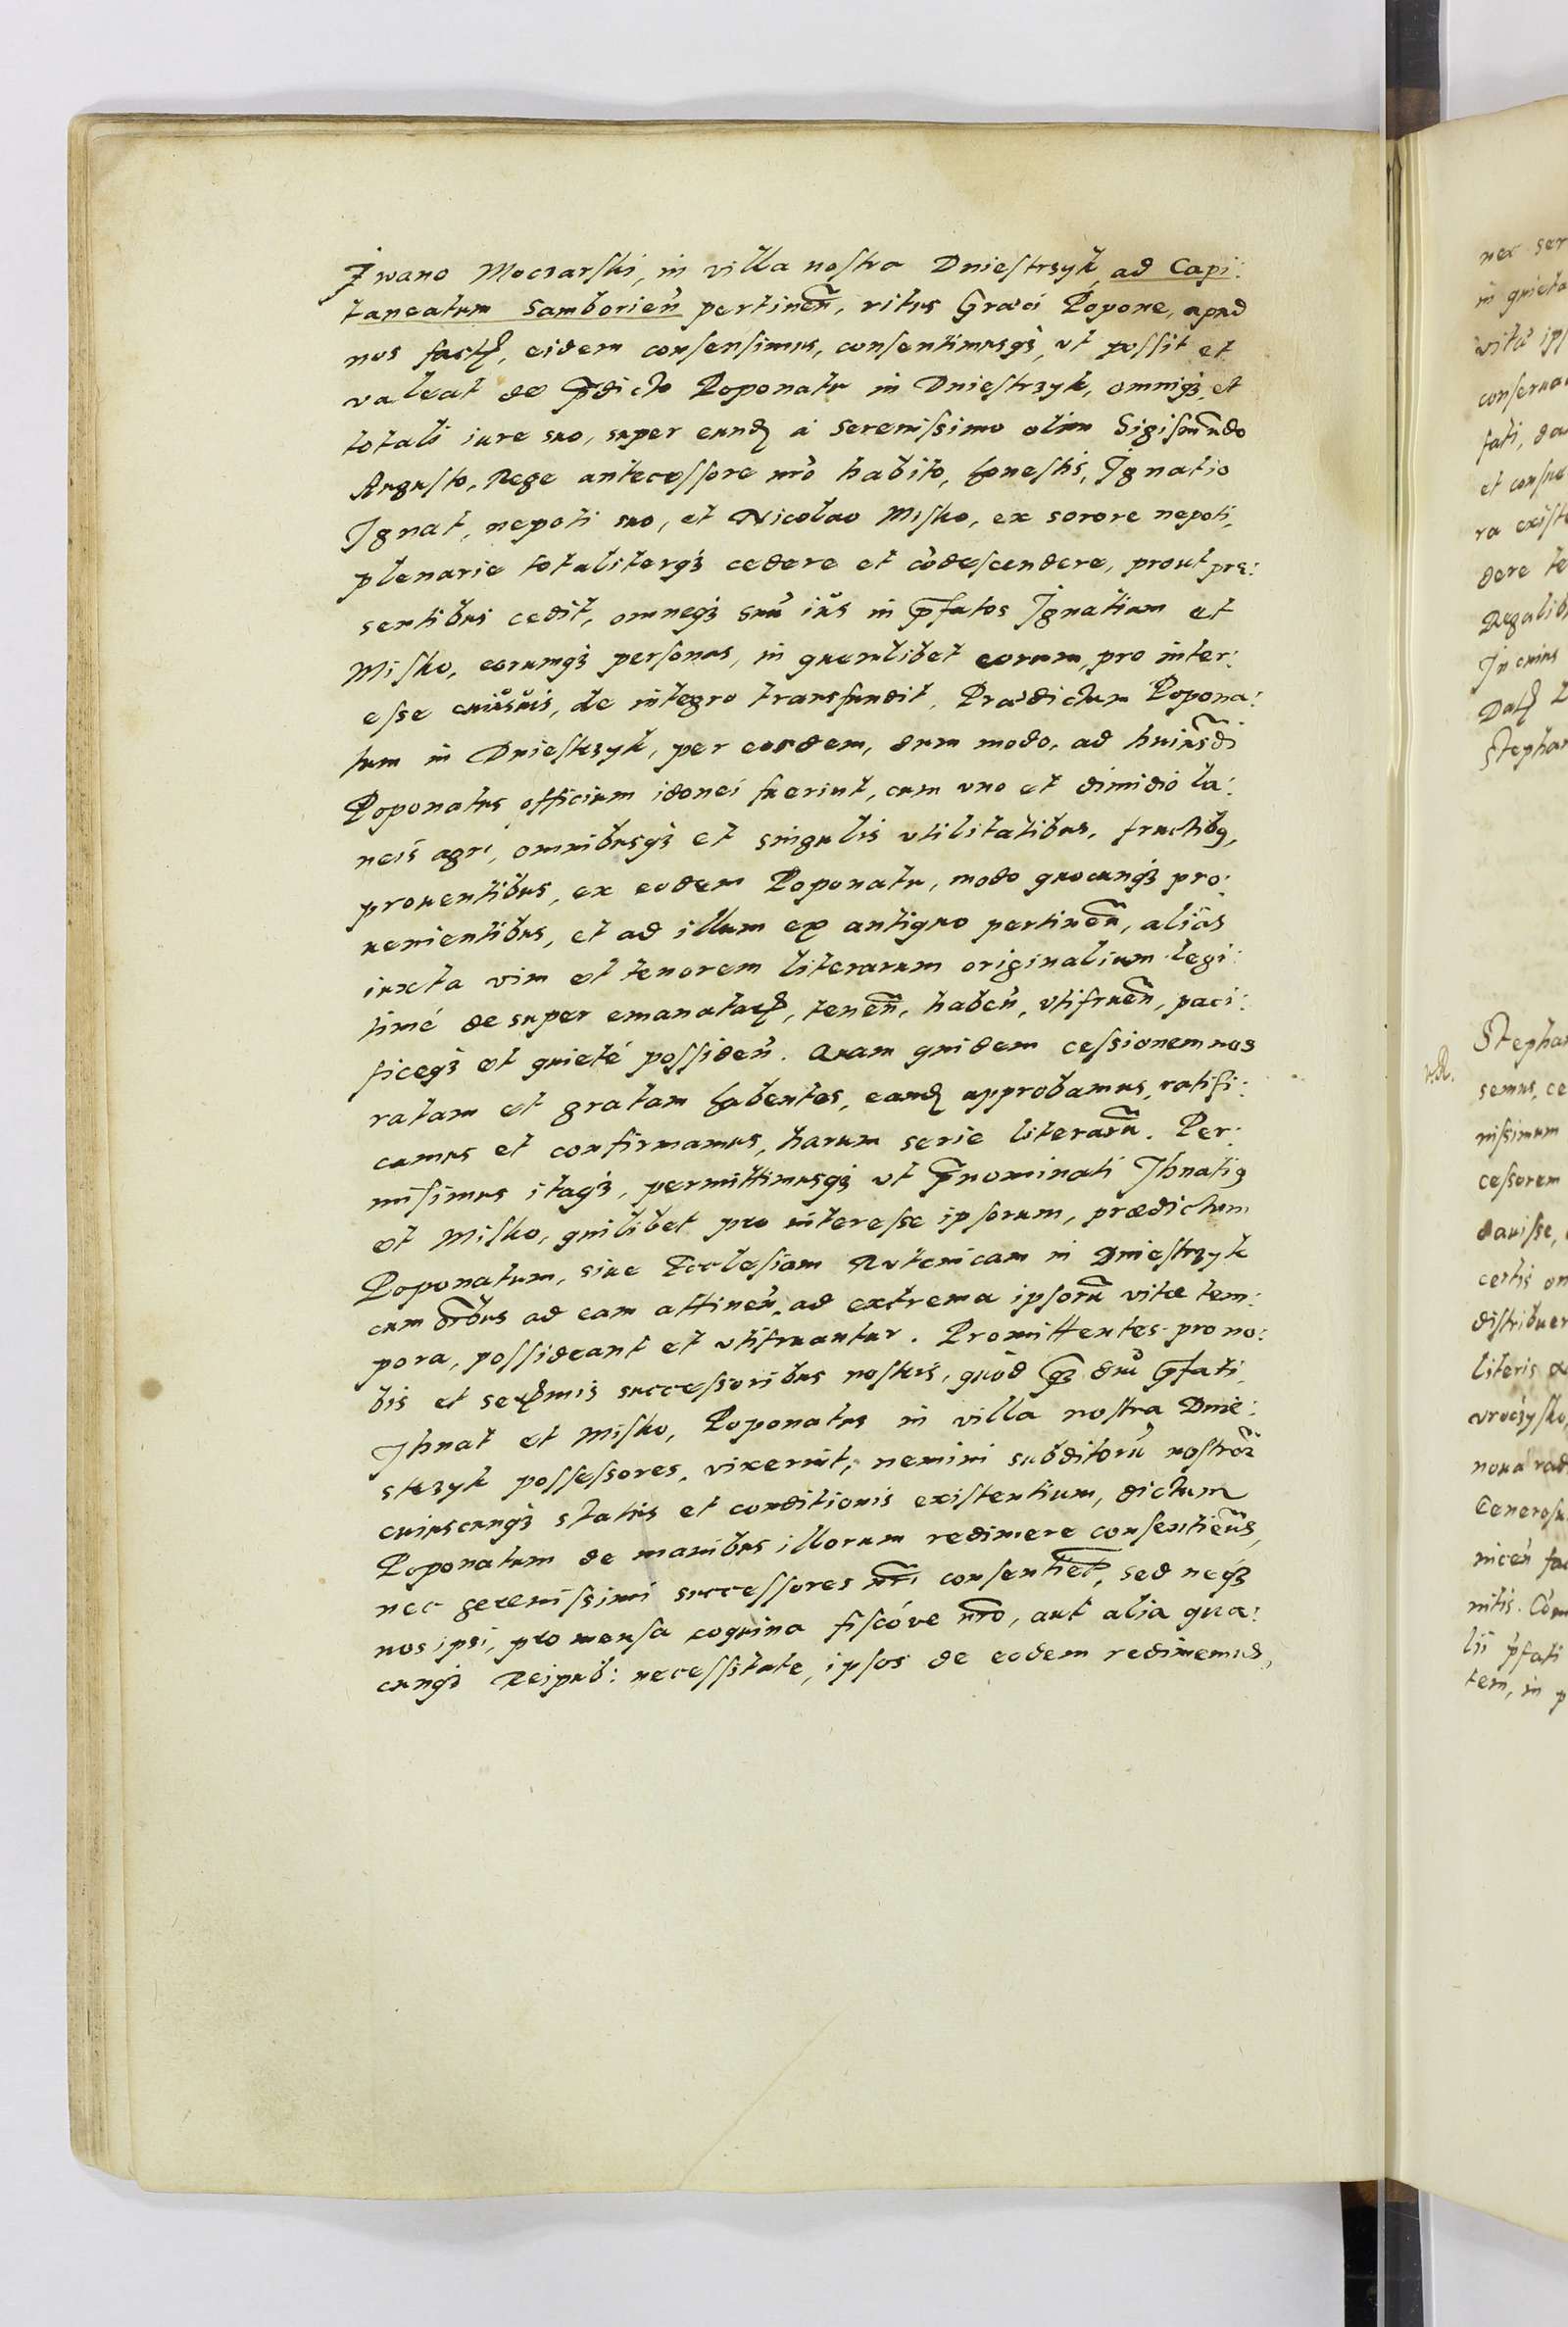 Jwano Moczarski, in villa nostra Dniestrzyk, ad Capi:
taneatum Samborien̄ pertinen̄, ritus Græci Popone, apud
nos factꝭ, eidem consensimus, consentimusqꝫ, vt possit et
valeat de p̄dicto Poponatu in Dniestrzyk, omniqꝫ et
totali iure suo, super eundꝭ à Serenissimo olim Sigismūndo
Augusto, Rege antecessore nr̄o habito, honestis, Ignatio
Ignat, nepoti suo, et Nicolao Misko, ex sorore nepoti,
plenarie totaliterqꝫ cedere et cōdescendere, prout præ:
sentibus cedit, omneqꝫ suū ius in p̄fatos Ignatium et
Misko, eorumqꝫ personas, in quemlibet eorum, pro inter:
esse cuiusuis, de integro transfundit. Prædictum Popona:
tum in Dniestrzyk, per eosdem, dum modo, ad huiusd̄i
Poponatus officium idonei fuerint, cum vno et dimidio la:
neis agri, omnibusqꝫ et singulis vtilitatibus, fructibꝯ,
prouentibus, ex eodem Poponatu, modo quocunqꝫ pro:
uenientibus, et ad illum ex antiquo pertinen̄, aliàs
iuxta vim et tenorem literarum originalium legi:
timé desuper emanatarꝭ, tenen̄, haben̄, vtifruen̄, paci:
ficeqꝫ et quieté possiden̄. Quam quidem cessionem nos
ratam et gratam habentes, eandꝭ approbamus, ratifi:
camus et confirmamus, harum serie literarū. Per:
misimus itaqꝫ, permittimusqꝫ vt p̄nominati Ihnatiꝯ
et Misko, quilibet pro interesse ipsorum, prædictum
Poponatum, siue Ecclesiam Rutenicam in Dniestrzyk
cum om̄bus ad eam attinen̄, ad extrema ipsorū vitæ tem:
pora, possideant et vtifruantur. Promittentes pro no:
bis et serꝭmis successoribus nostris, quòd qꝫ diū p̄fati,
Ihnat et Misko, Poponatus in villa nostra Dnie:
strzyk possessores, vixerint, nemini subditorū nostrōr
cuiuscunqꝫ status et conditionis existentium, dictum
Poponatum de manibus illorum redimere consentiem̄s,
nec serenissimi successores nr̄i consentiēt, sed neqꝫ
nos ipsi, pro mensa coquina fiscóve nr̄o, aut alia qua:
cunqꝫ Reipub: necessitate, ipsos de eodem redimemus,
nex ser
in quieta
vitæ ips
conserua
fati, da
et consue
ra existe
dere te
Regalib
In cuius
Datꝭ
Stephan
Stephan
semus, ce
nissimum
cessorem
dauisse,
certis
distribuer
literis
nona
Generosu
nicen̄ fac
mitis. Com
lii p̄fati
tem, in p